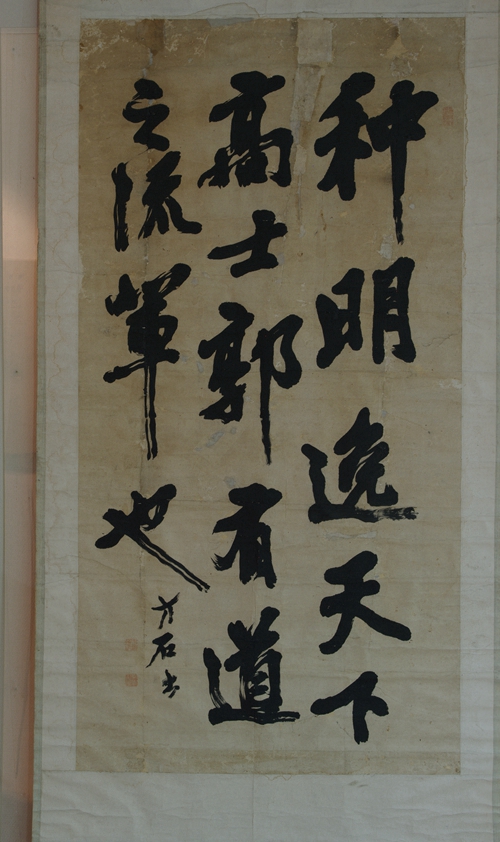 种明逸天下
高士郭有道
之流軰也
石書